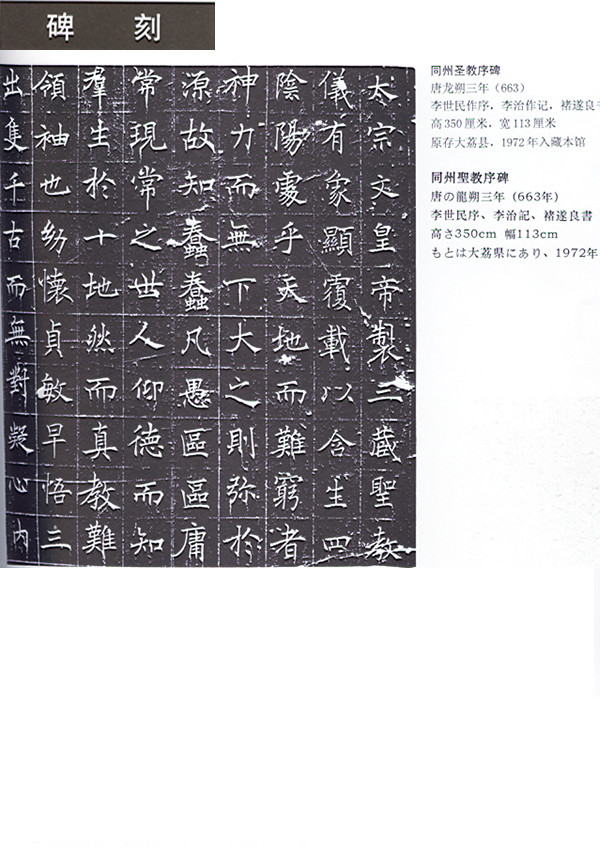 碑 刻
太宗文皇帝製三藏聖教
儀有象顯覆載以含生四
陰陽處乎天地而難窮者
神力而無下大之則弥於
源故知蠢蠢凡愚區區庸
常現常之世人仰德而知
羣生於十地然而真教難
領袖也幼懷貞敏早悟三
出隻千古而無對凝心内
同州圣教序碑
唐龙朔三年（663）
李世民作序，李治作记，褚遂良
高350厘米，宽113厘米
原存大荔县，1972年入藏本馆
同州聖教序碑
唐の龍朔三年（663年）
李世民序、李治記、褚遂良書
高さ350cm 幅113cm
もとは大荔県にあり、1972年